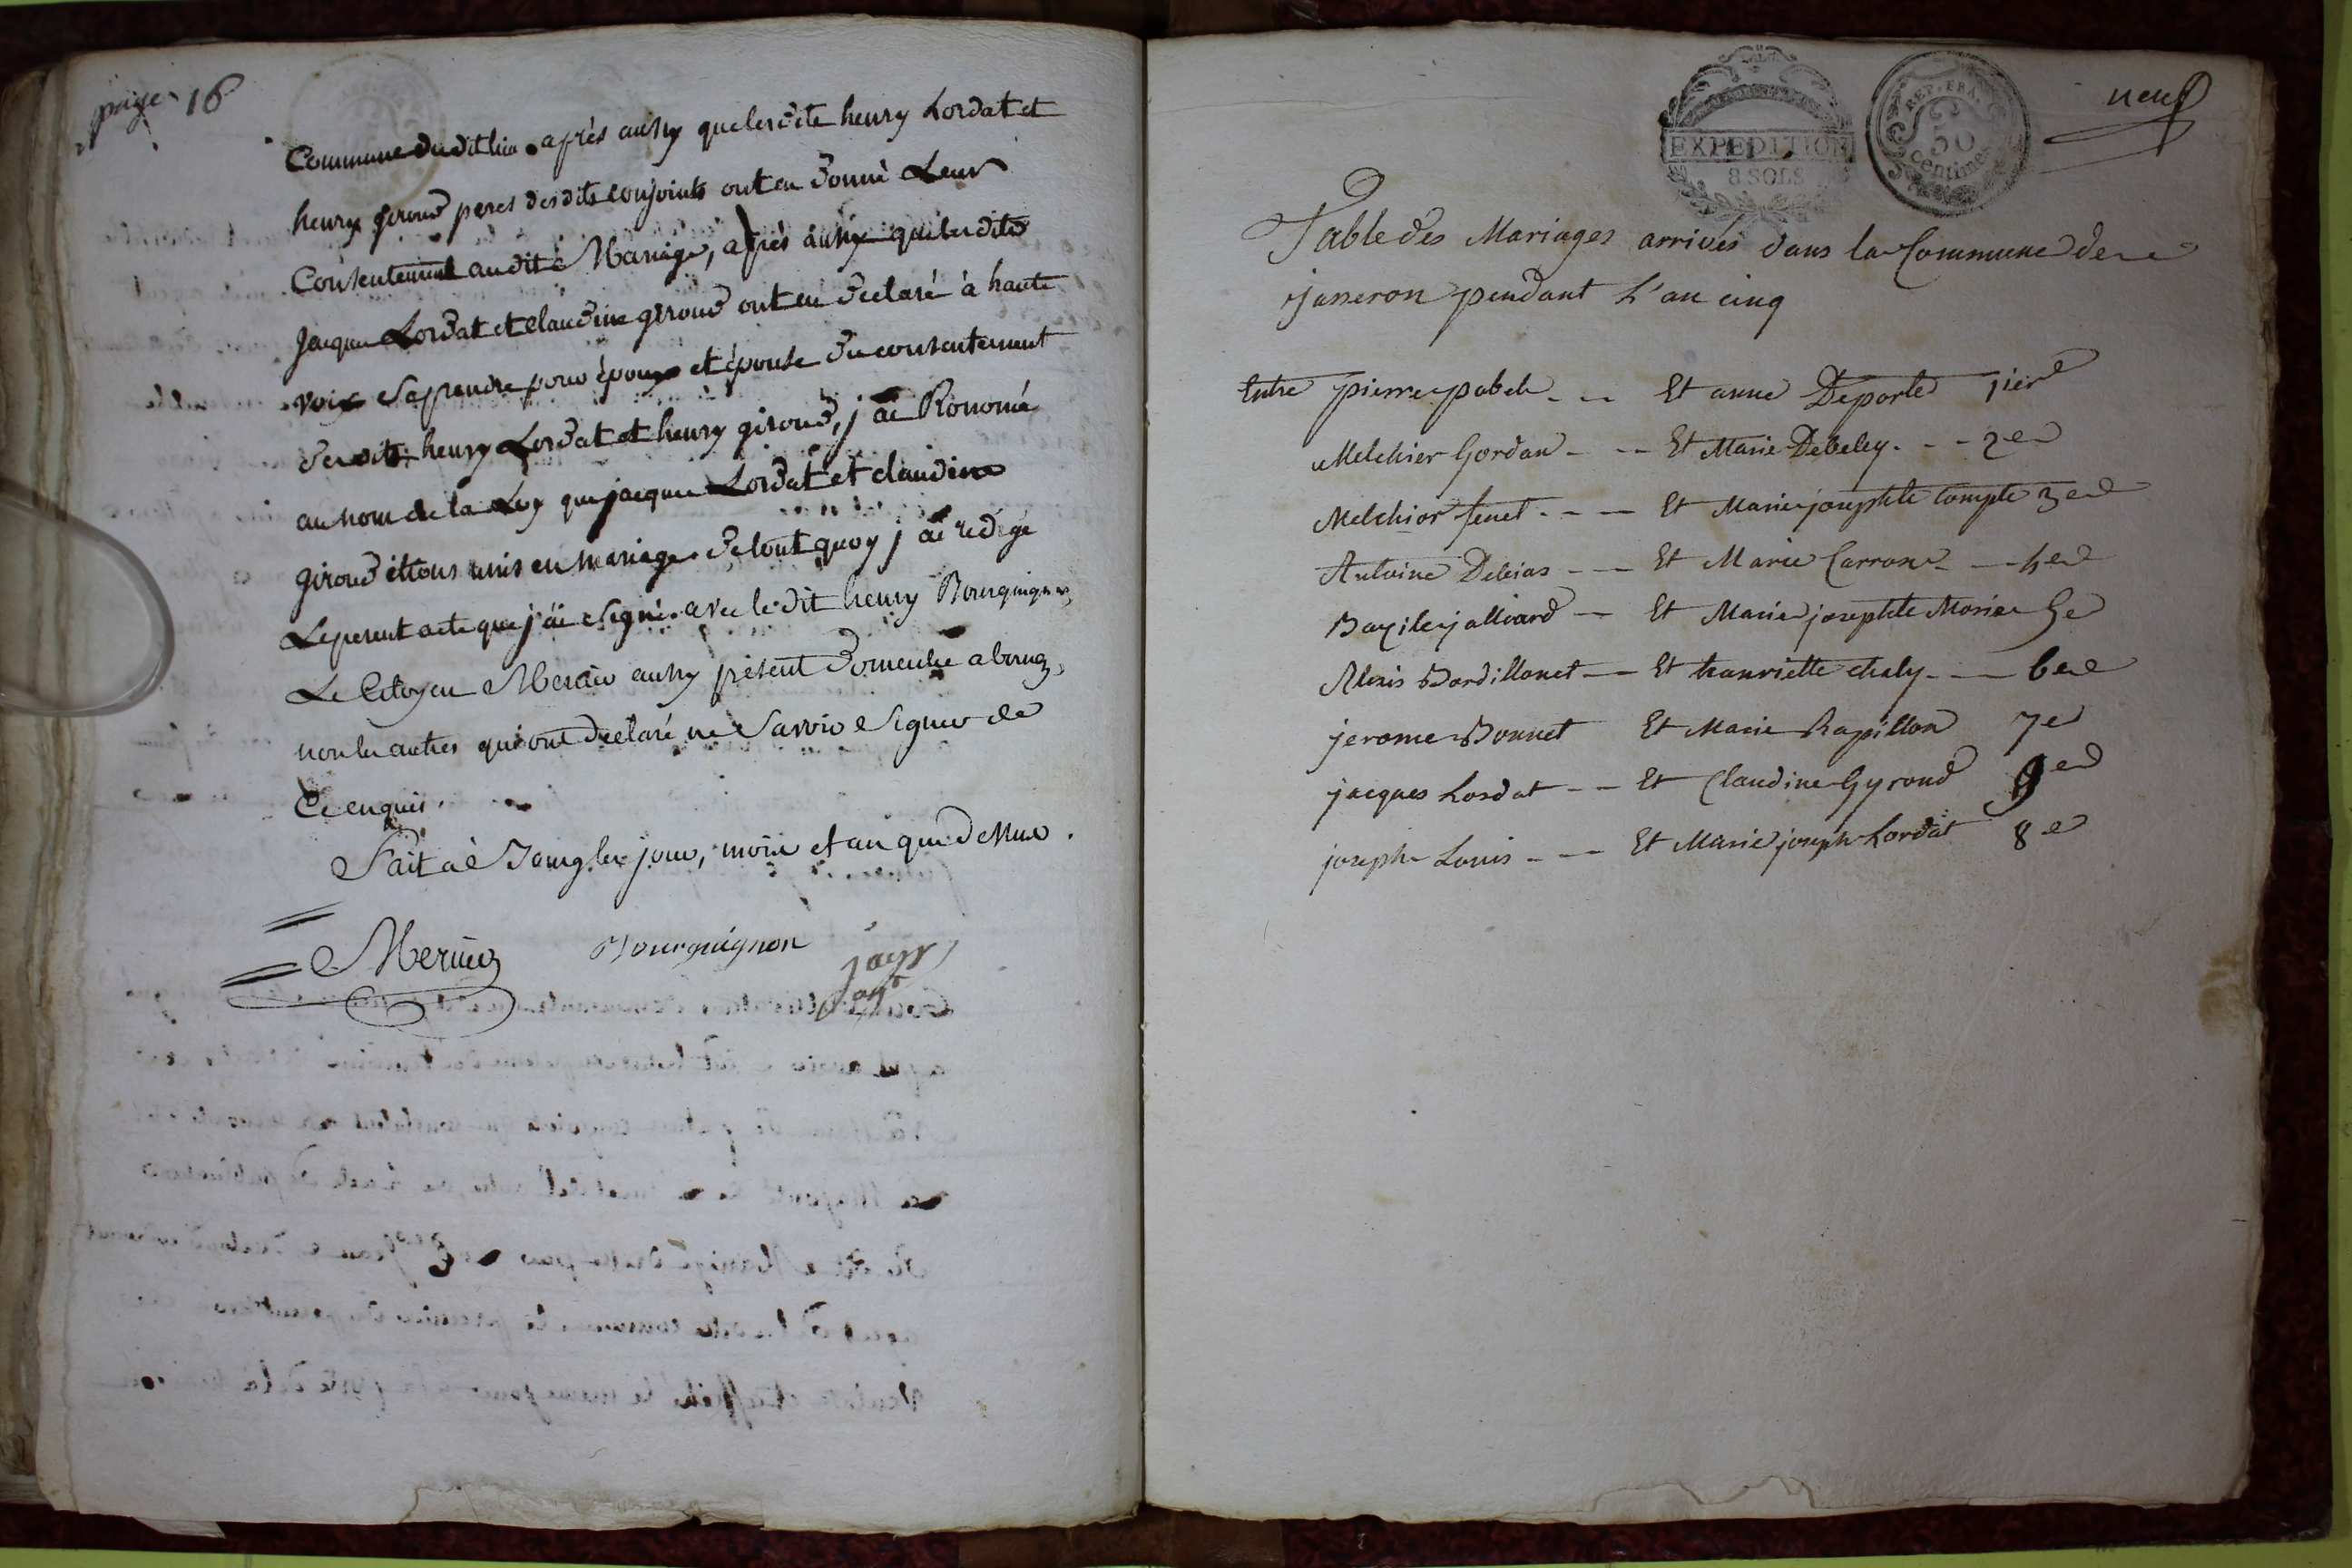 page 16
Commune du dit lieu. après aussy que lesdits henry Lordat et
henry giroud peres desdits conjoints ont eu donné Leur
Consentement au dit Mariage, après aussy que lesdits
Jacque Lordat et claudine giroud ont eu declaré à haute
voix se prendre pour époux et épouse du consentement
desdits henry Lordat et henry giroud, j'ai
au nom de la Loy que jacque Lordat et claudine
giroud étions unis en mariage. De tout quoy j'ai redigé
Le present acte que j'ai signé avec le dit henry Bourguignon,
Le Citoyen Mercier aussy présent à bourg,
non les autres qui ont declaré ne Savoir Signer de
Ce enquis.
Fait à les jour, mois et an que dessus.
Mercier Bourguignon
jayr
agt
neuf
EXPEDITION
8 SOLS
REP. FRA.
50
centimes
Table des Mariages arrivés dans la Commune de
jasseron pendant L'an cinq
Entre pierre pobel - - Et anne Deporte 1ier
Melchior Gordan - - - Et Marie Debeley - - - 2e
Melchior fenet - - - Et Marie josephte Compte 3e
Antoine Debias - - - Et Marie Carron - - - 4e
Bazile jalliard - - Et Marie josephte Morier 5e
Alexis Bordillonet - - Et hanriette chaly - - - 6e
jerome Bonnet Et Marie Rapillon 7e
jacques Lordat - - Et Claudine Gyroud 9e
joseph Louis - - - Et Marie joseph Lordat 8e